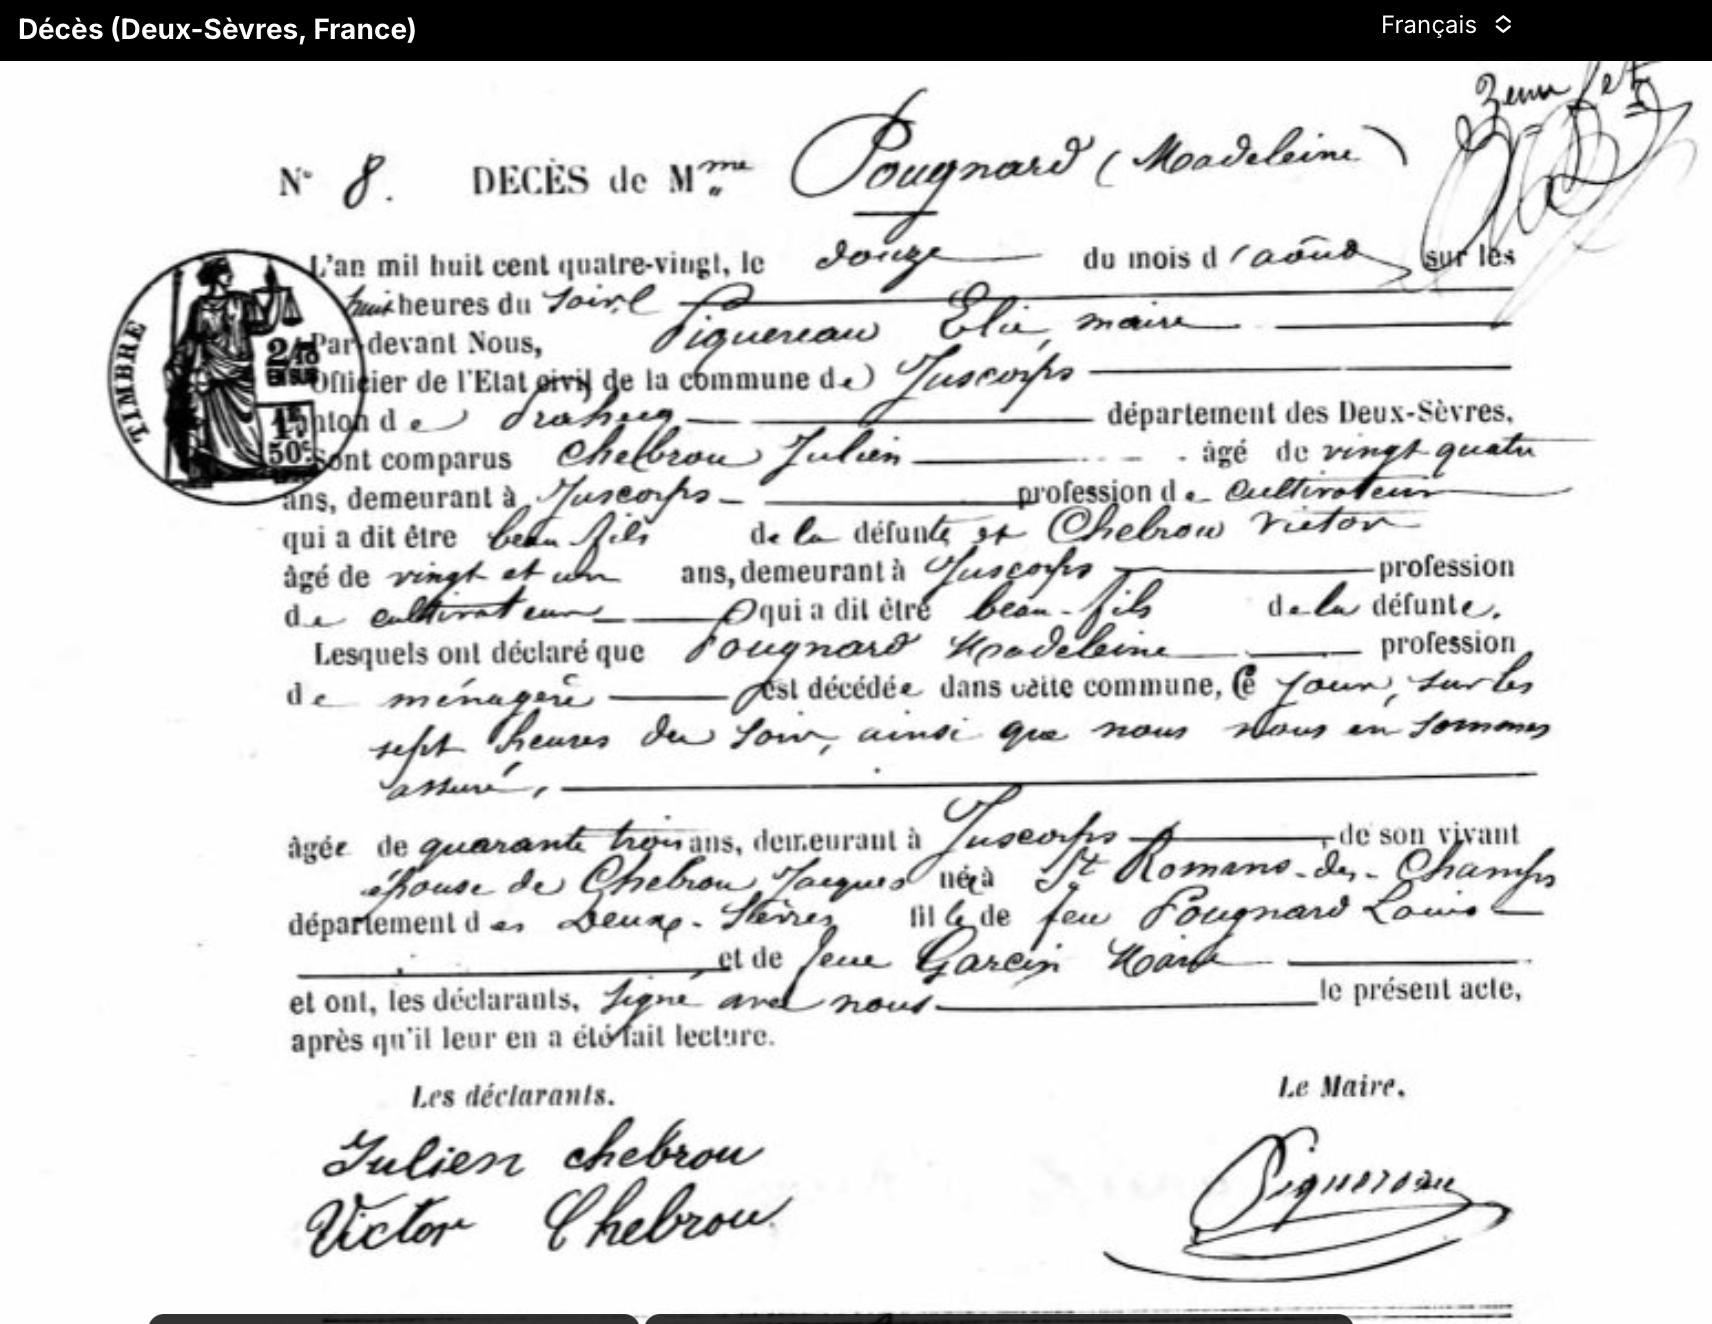 Décès (Deux-Sèvres, France)
Français
N° 8. DECÈS de Mme Pougnard (Madeleine)
L'an mil huit cent quatre-vingt, le douze du mois d'août sur les
huit heures du soir
Par-devant Nous, Piquereau Elie, maire
Officier de l'Etat civil de la commune de Juscorps
canton de Prahecq département des Deux-Sèvres,
Sont comparus Chebrou Julien âgé de vingt quatre
ans, demeurant à Juscorps profession de cultivateur
qui a dit être beau fils de la défunte et Chebrou Victor
âgé de vingt et un ans, demeurant à Juscorps profession
de cultivateur qui a dit être beau-fils de la défunte.
Lesquels ont déclaré que Pougnard Madeleine profession
de ménagère est décédée dans cette commune, Ce jour, sur les
sept heures du soir, ainsi que nous nous en sommes
assuré,
âgée de quarante trois ans, demeurant à Juscorps de son vivant
épouse de Chebrou Jacques née à St Romans-des-Champs
département des Deux-Sèvres fille de feu Pougnard Louis
et de feue Garcin Marie
et ont, les déclarants, signé avec nous le présent acte,
après qu'il leur en a été fait lecture.
Les déclarants. Le Maire.
Julien chebrou
Victor Chebrou Piquereau
TIMBRE
50c